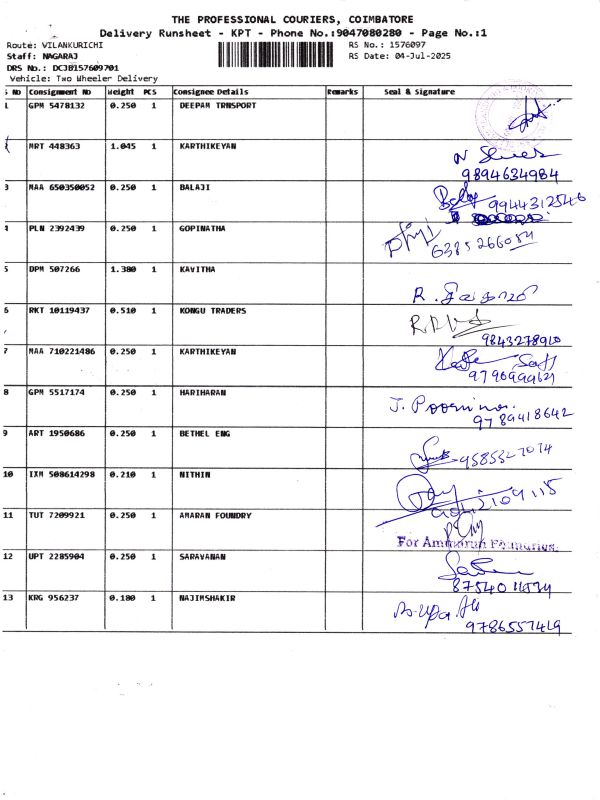 THE PROFESSIONAL COURIERS, COIMBATORE
Delivery Runsheet - KPT - Phone No.:9047080280 - Page No.:1
Route: VILANKURICHI RS No.: 1576097
Staff: NAGARAJ RS Date: 04-Jul-2025
DRS No.: DCJB157609701
Vehicle: Two Wheeler Delivery
S No Consignment No Weight PCS Consignee Details Remarks Seal & Signature
1 GPM 5478132 0.250 1 DEEPAM TRNSPORT
2 MRT 448363 1.045 1 KARTHIKEYAN
9894634984
3 MAA 650350052 0.250 1 BALAJI
9944312546
4 PLN 2392439 0.250 1 GOPINATHA
6385266054
5 DPM 507266 1.380 1 KAVITHA
6 RKT 10119437 0.510 1 KONGU TRADERS
9843278910
7 MAA 710221486 0.250 1 KARTHIKEYAN
8 GPM 5517174 0.250 1 HARIHARAN
J. Poornima.
9789418642
9 ART 1950686 0.250 1 BETHEL ENG
10 IXM 508614298 0.210 1 NITHIN
11 TUT 7209921 0.250 1 AMARAN FOUNDRY
For Ammarun Foundries.
12 UPT 2285904 0.250 1 SARAVANAN
13 KRG 956237 0.180 1 NAJIMSHAKIR
9786557419